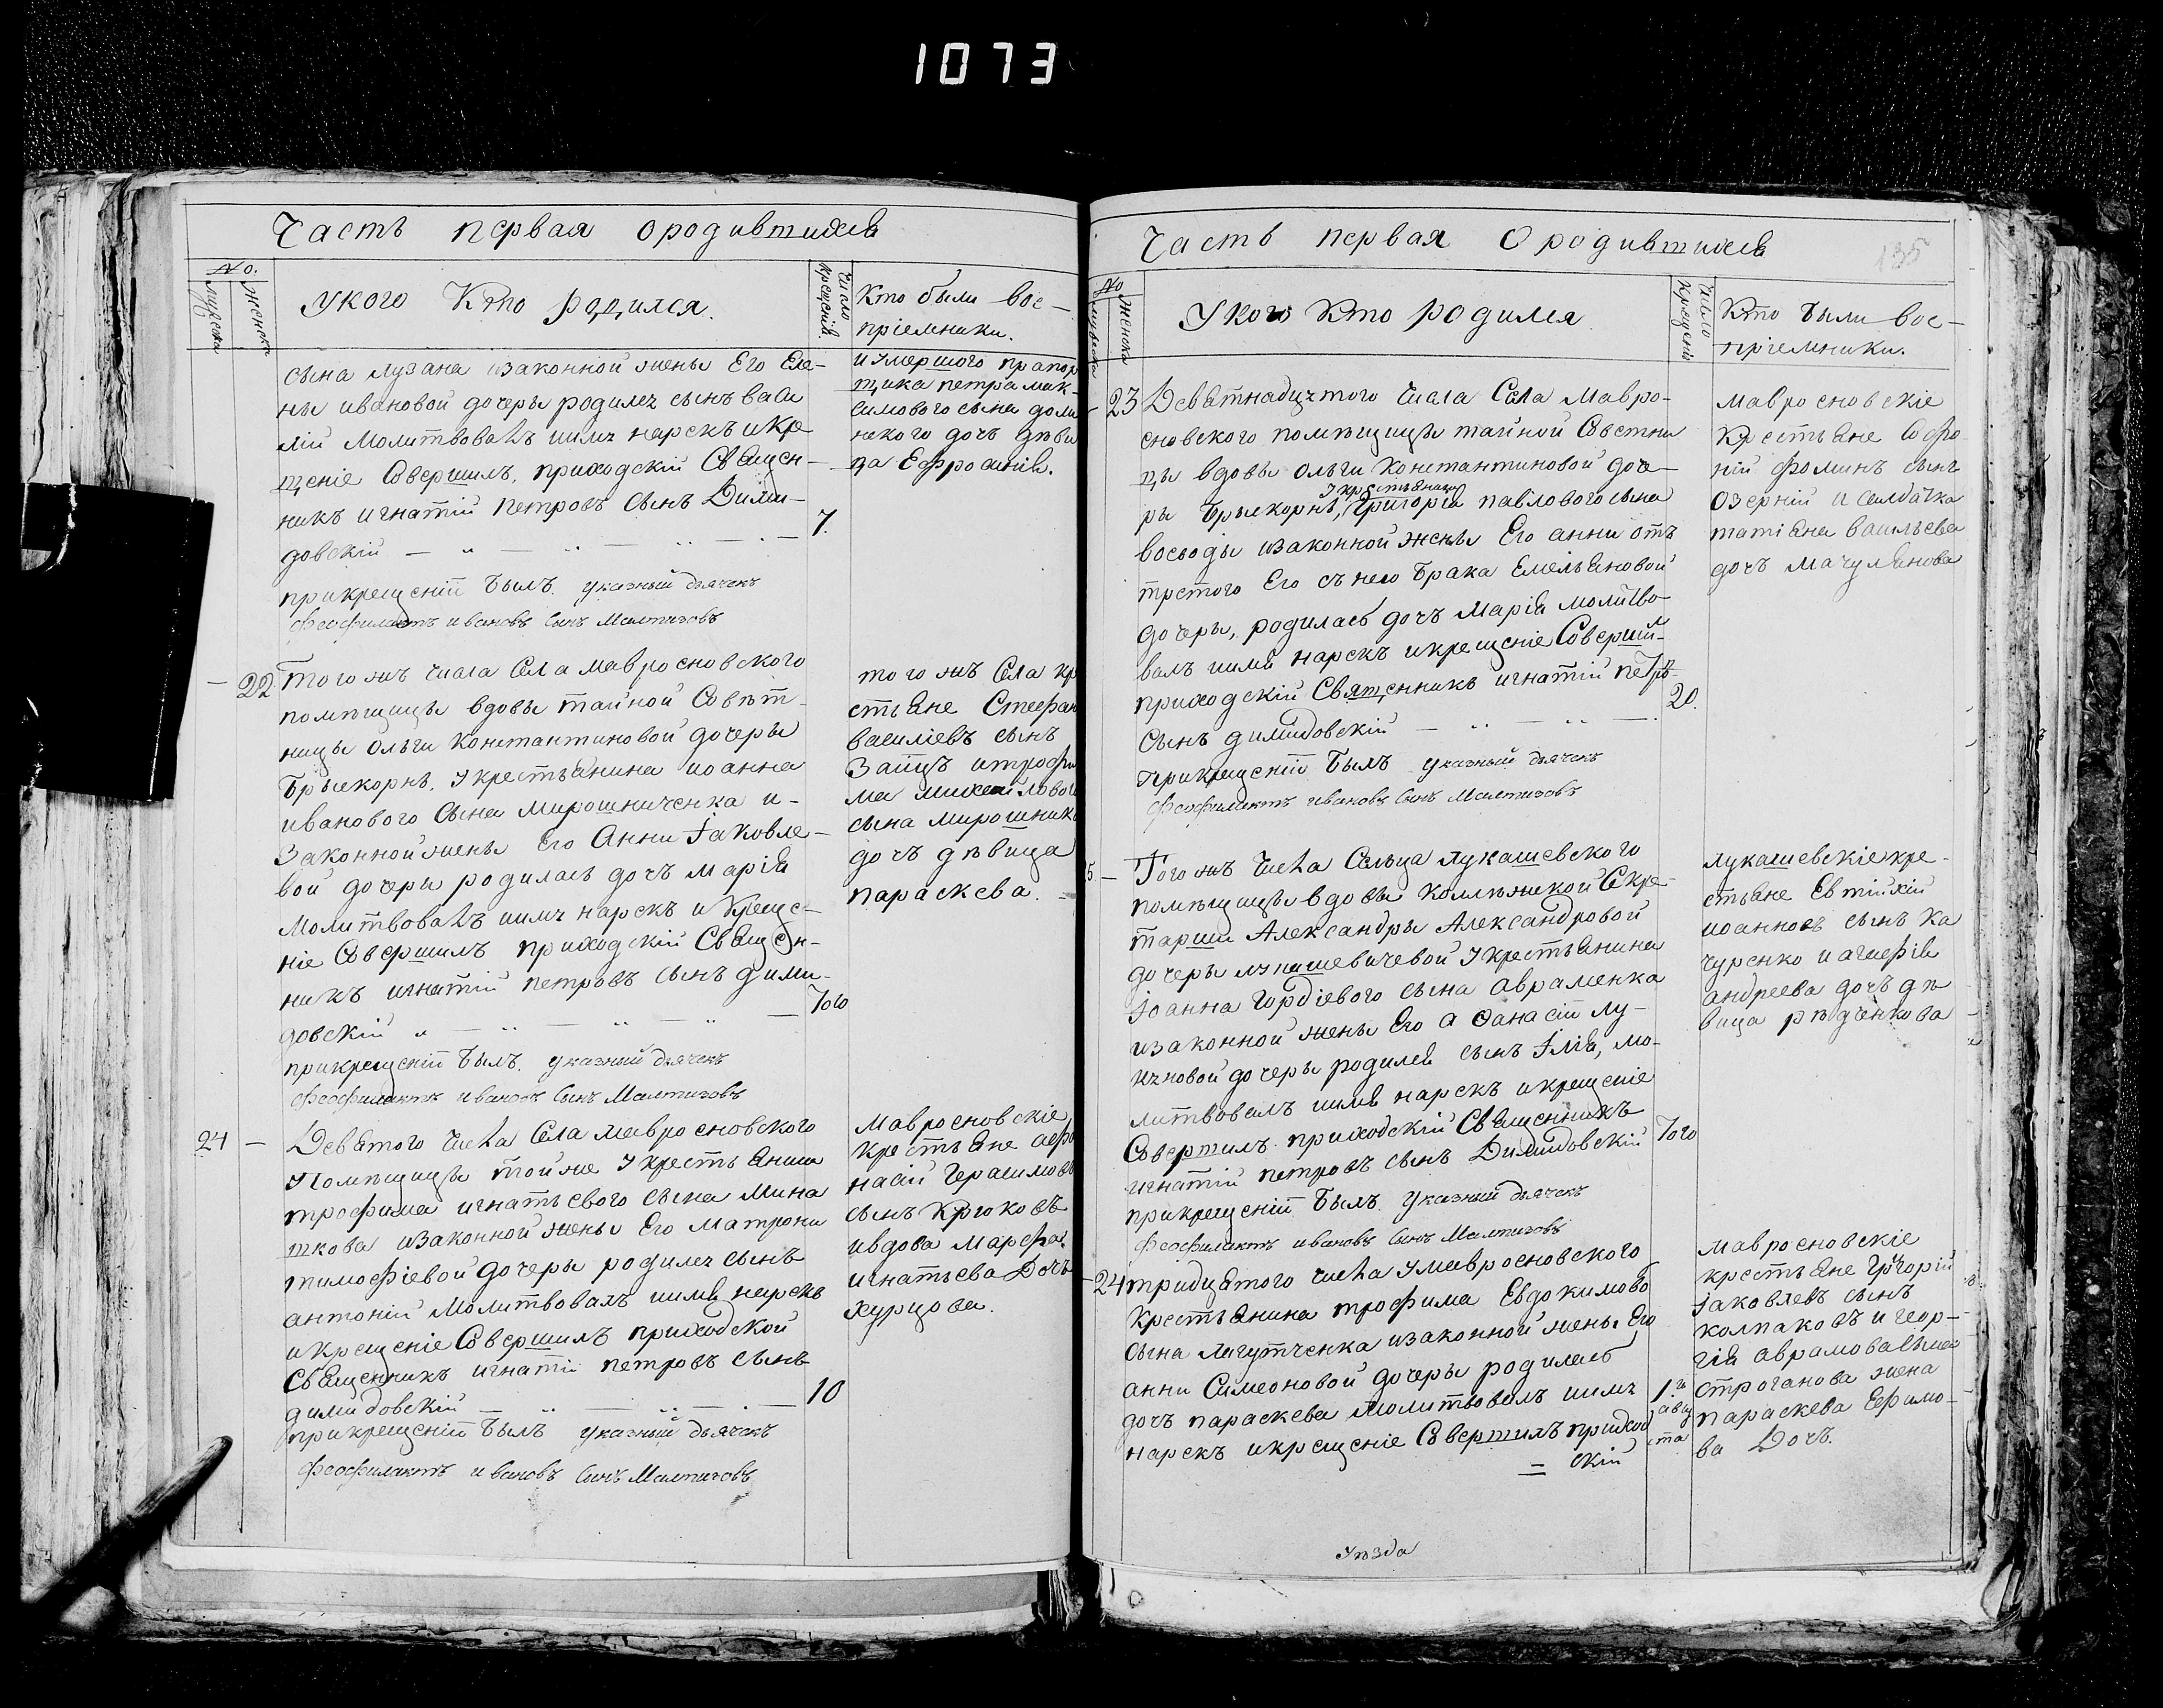 1073
Часть первая ородившихся
No.
мужеска
женска
укого Кто родился.
Число
крещенія.
Кто были вос-
пріемники.
сына лузана изаконной жены Его Еле-
ны ивановой дочеры родилсz сынъ васи
лій Молитвовалъ имz нарекъ икре
щеніе Совершилъ, приходскій Священ-
никъ игнатій петровъ Сынъ Дими-
довскій
7.
прикрещеніи Былъ. указный дьячекъ
Феофилактъ ивановъ Сынъ
и умершого прапор
щика петра мак-
симового сына доли
нского дочъ дѣви
ца Ефросинія.
22
Того жъ числа Села мавросновского
помѣщицы вдовы тайной Совѣт-
ницы Ольги константиновой дочеры
Брыскорнъ. У крестьянина иоанна
иванового Сына мирошниченка и-
Законной жены Его Анны Іаковле-
вой дочеры родилась дочъ марія
Молитвовалъ имz нарекъ и Креще-
ніе Совершилъ приходскій Священ-
никъ игнатій петровъ сынъ дими-
довскій
Того
прикрещеніи Былъ. указный дьячекъ
Феофилактъ ивановъ Сынъ
того жъ Села кр
стьяне Стефан
василіевъ сынъ
Заицъ итрофи
ма михайлового
сына мирошник
дочъ дѣвица
параскева.
24
Девятого числа Села мавросновского
Помѣщицы тойже У крестьянина
трофима игнатьевого сына Мина
шкова изаконной жены Его матроны
тимофіевой дочеры родилсz сынъ
антоній Молитвовалъ имя нарекъ
икрещеніе Совершилъ приходской
Священникъ игнатіи петровъ сынъ
димидовскій
10
прикрещеніи Былъ указный дьячекъ
Феофилактъ ивановъ Сынъ
Мавросновскіе
крестьяне афо
насій Герасимовъ
сынъ Крюковъ
ивдова Марфа.
игнатьева Дочъ
хурцова.
Часть первая О родившихся
135
No
мужеска
женска
Укого Кто родился
Число
крещенія
Кто Были вос-
пріемники.
23
Девятнадцтого числа Села Мавро-
сновского помѣщицы тайной Совѣтни
цы вдовы Ольги Константиновой доче-
У крестьянина
ры Брыскорнъ, Григорія павлового сына
восводы изаконной жены Его анны отъ
третого Его съ нею Брака Емельяновой
дочеры, родилась дочъ Марія молитво
валъ имя нарекъ икрещеніе Соверши-
приходскій Священникъ игнатій петръ
сынъ димидовскій
20.
прикрещеніи Былъ указный дьячекъ
Феофилактъ ивановъ Сынъ
мавросновскіе
Крестьяне Софро
ній фоминъ сынъ
Озерній и Салдатка
татіяна васильева
дочъ мачулянова
5.
Того жъ числа Сельца лукашевского
помѣщицы вдовы колѣжской Секре
тарши Александры Александровой
дочеры лукашевичевой У крестьянина
Іоанна гордіевого сына авраменка
изаконной жены Его афанасіи лу-
кzновой дочеры родился сынъ Ілія, мо-
литвовалъ имя нарекъ икрещеніе
Совершилъ приходскій Священникъ
игнатій петровъ сынъ Димидовскій
Того
прикрещеніи Былъ. указный дьячекъ
Феофилактъ ивановъ Сынъ
лукашевскіе кре-
стьяне Евтихій
иоанновъ сынъ ка
чуренко и агафія
андреева дочъ дѣ
вица рѣдченкова
24
тридцятого числа У мавросновского
Крестьянина трофима Евдокимово
сына лигутченка изаконной жены Его
анны Симеоновой дочеры родиласъ
дочъ параскева Молитвовалъ имz
нарекъ икрещеніе Совершилъ приход
скій
1.го
авгу
ста
мавросновскіе
крестьяне Григорій
іаковлевъ сынъ
колпаковъ и геор-
гія аврамова сына
строганова жена
параскева Ефимо-
ва Дочъ.
Уѣзда